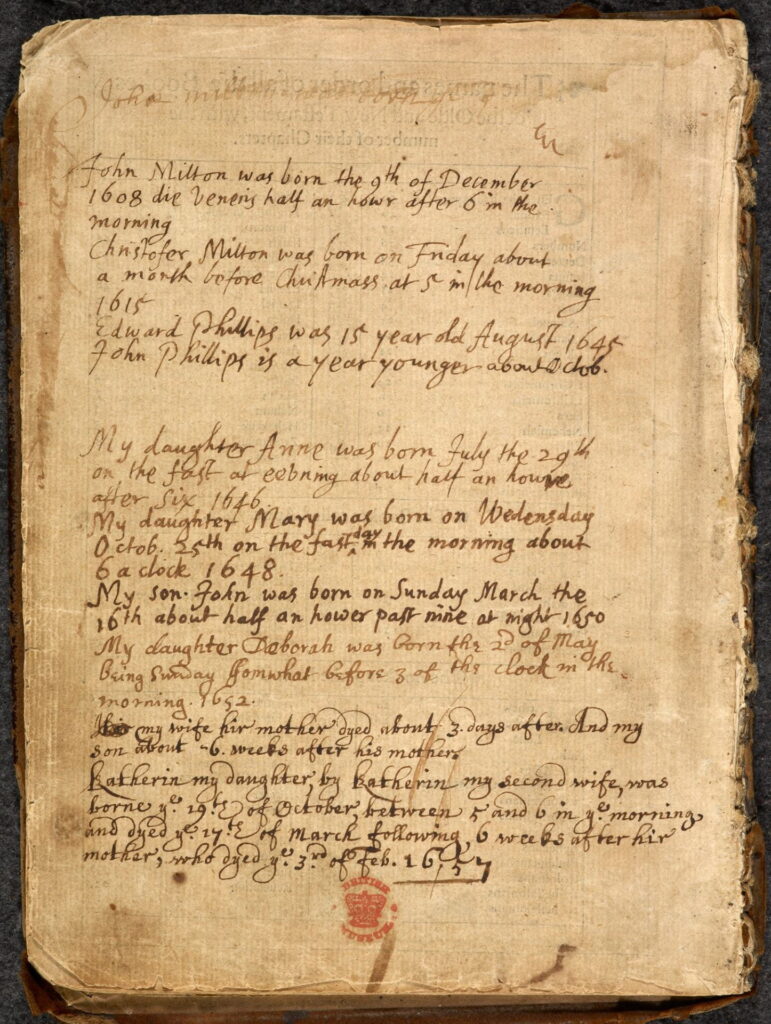 John
John Milton was born the 9th of December
1608 die Veneris half an howr after 6 in the
morning
Christofer Milton was born on Friday about
a month before Christmass at 5 in the morning
1615
Edward Phillips was 15 year old August 1645
John Phillips is a year younger about Octob.
My daughter Anne was born July the 29th
on the fast at eebning about half an howre
after six 1646
My daughter Mary was born on Wedensday
Octob. 25th on the fast day in the morning about
6 a clock 1648.
My son John was born on Sunday March the
16th about half an hower past nine at night 1650
My daughter Deborah was born the 2d of May
being Sunday somwhat before 3 of the clock in the
morning. 1652.
my wife hir mother dyed about 3. days after. And my
son about 6. weeks after his mother.
Katherin my daughter, by Katherin my second wife, was
borne ye. 19th of October, between 5 and 6 in ye. morning,
and dyed ye. 17th of March following, 6 weeks after hir
mother, who dyed ye. 3rd of Feb. 1657
BRITISH
MUSEUM